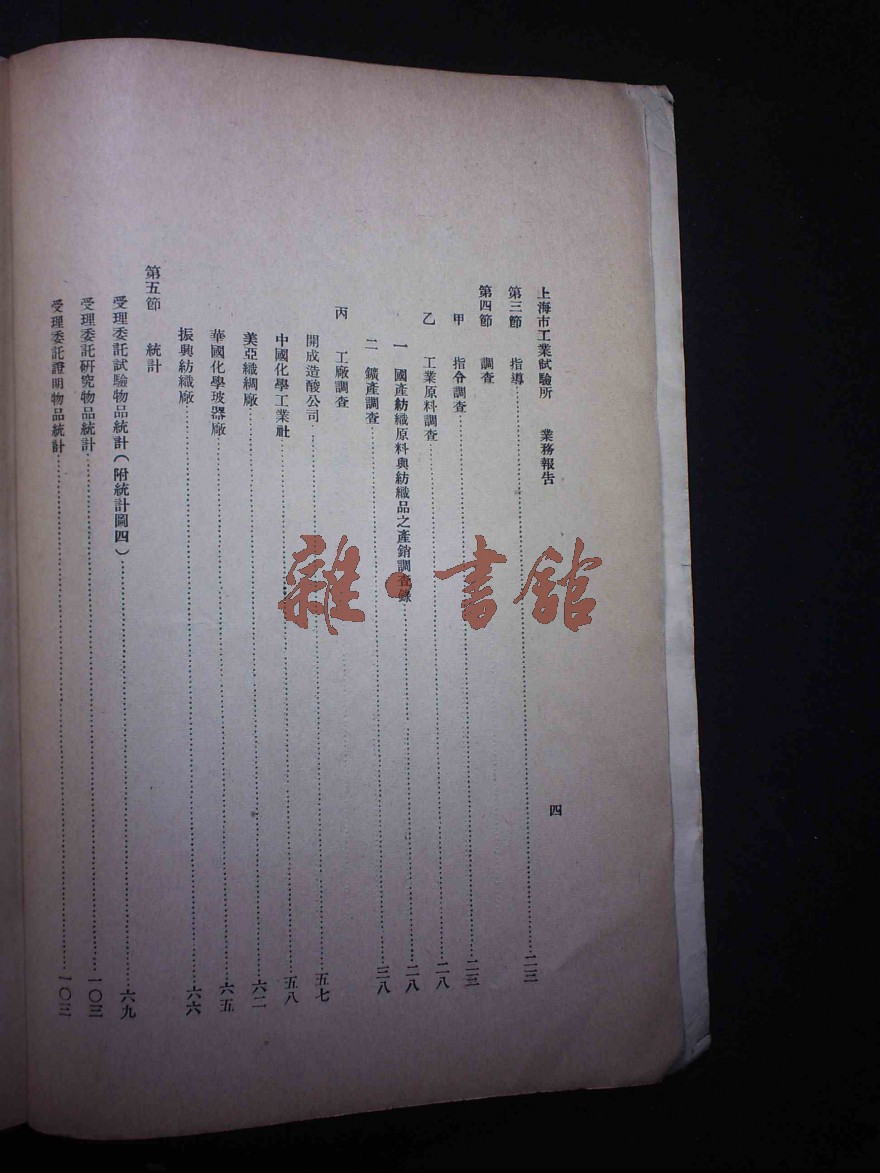 上海市工業試驗所 業務報告 四
第三節 指導…………二三
第四節 調查
甲 指令調查…………二三
乙 工業原料調查…………二八
一 國產紡織原料與紡織品之產銷調查錄…………二八
二 鑛產調查…………三八
丙 工廠調查
開成造酸公司…………五七
中國化學工業社…………五八
美亞織綢廠…………六二
華國化學玻器廠…………六五
振興紡織廠…………六六
第五節 統計
受理委託試驗物品統計(附統計圖四)…………六九
受理委託研究物品統計…………一〇三
受理委託證明物品統計…………一〇三
雜·書館